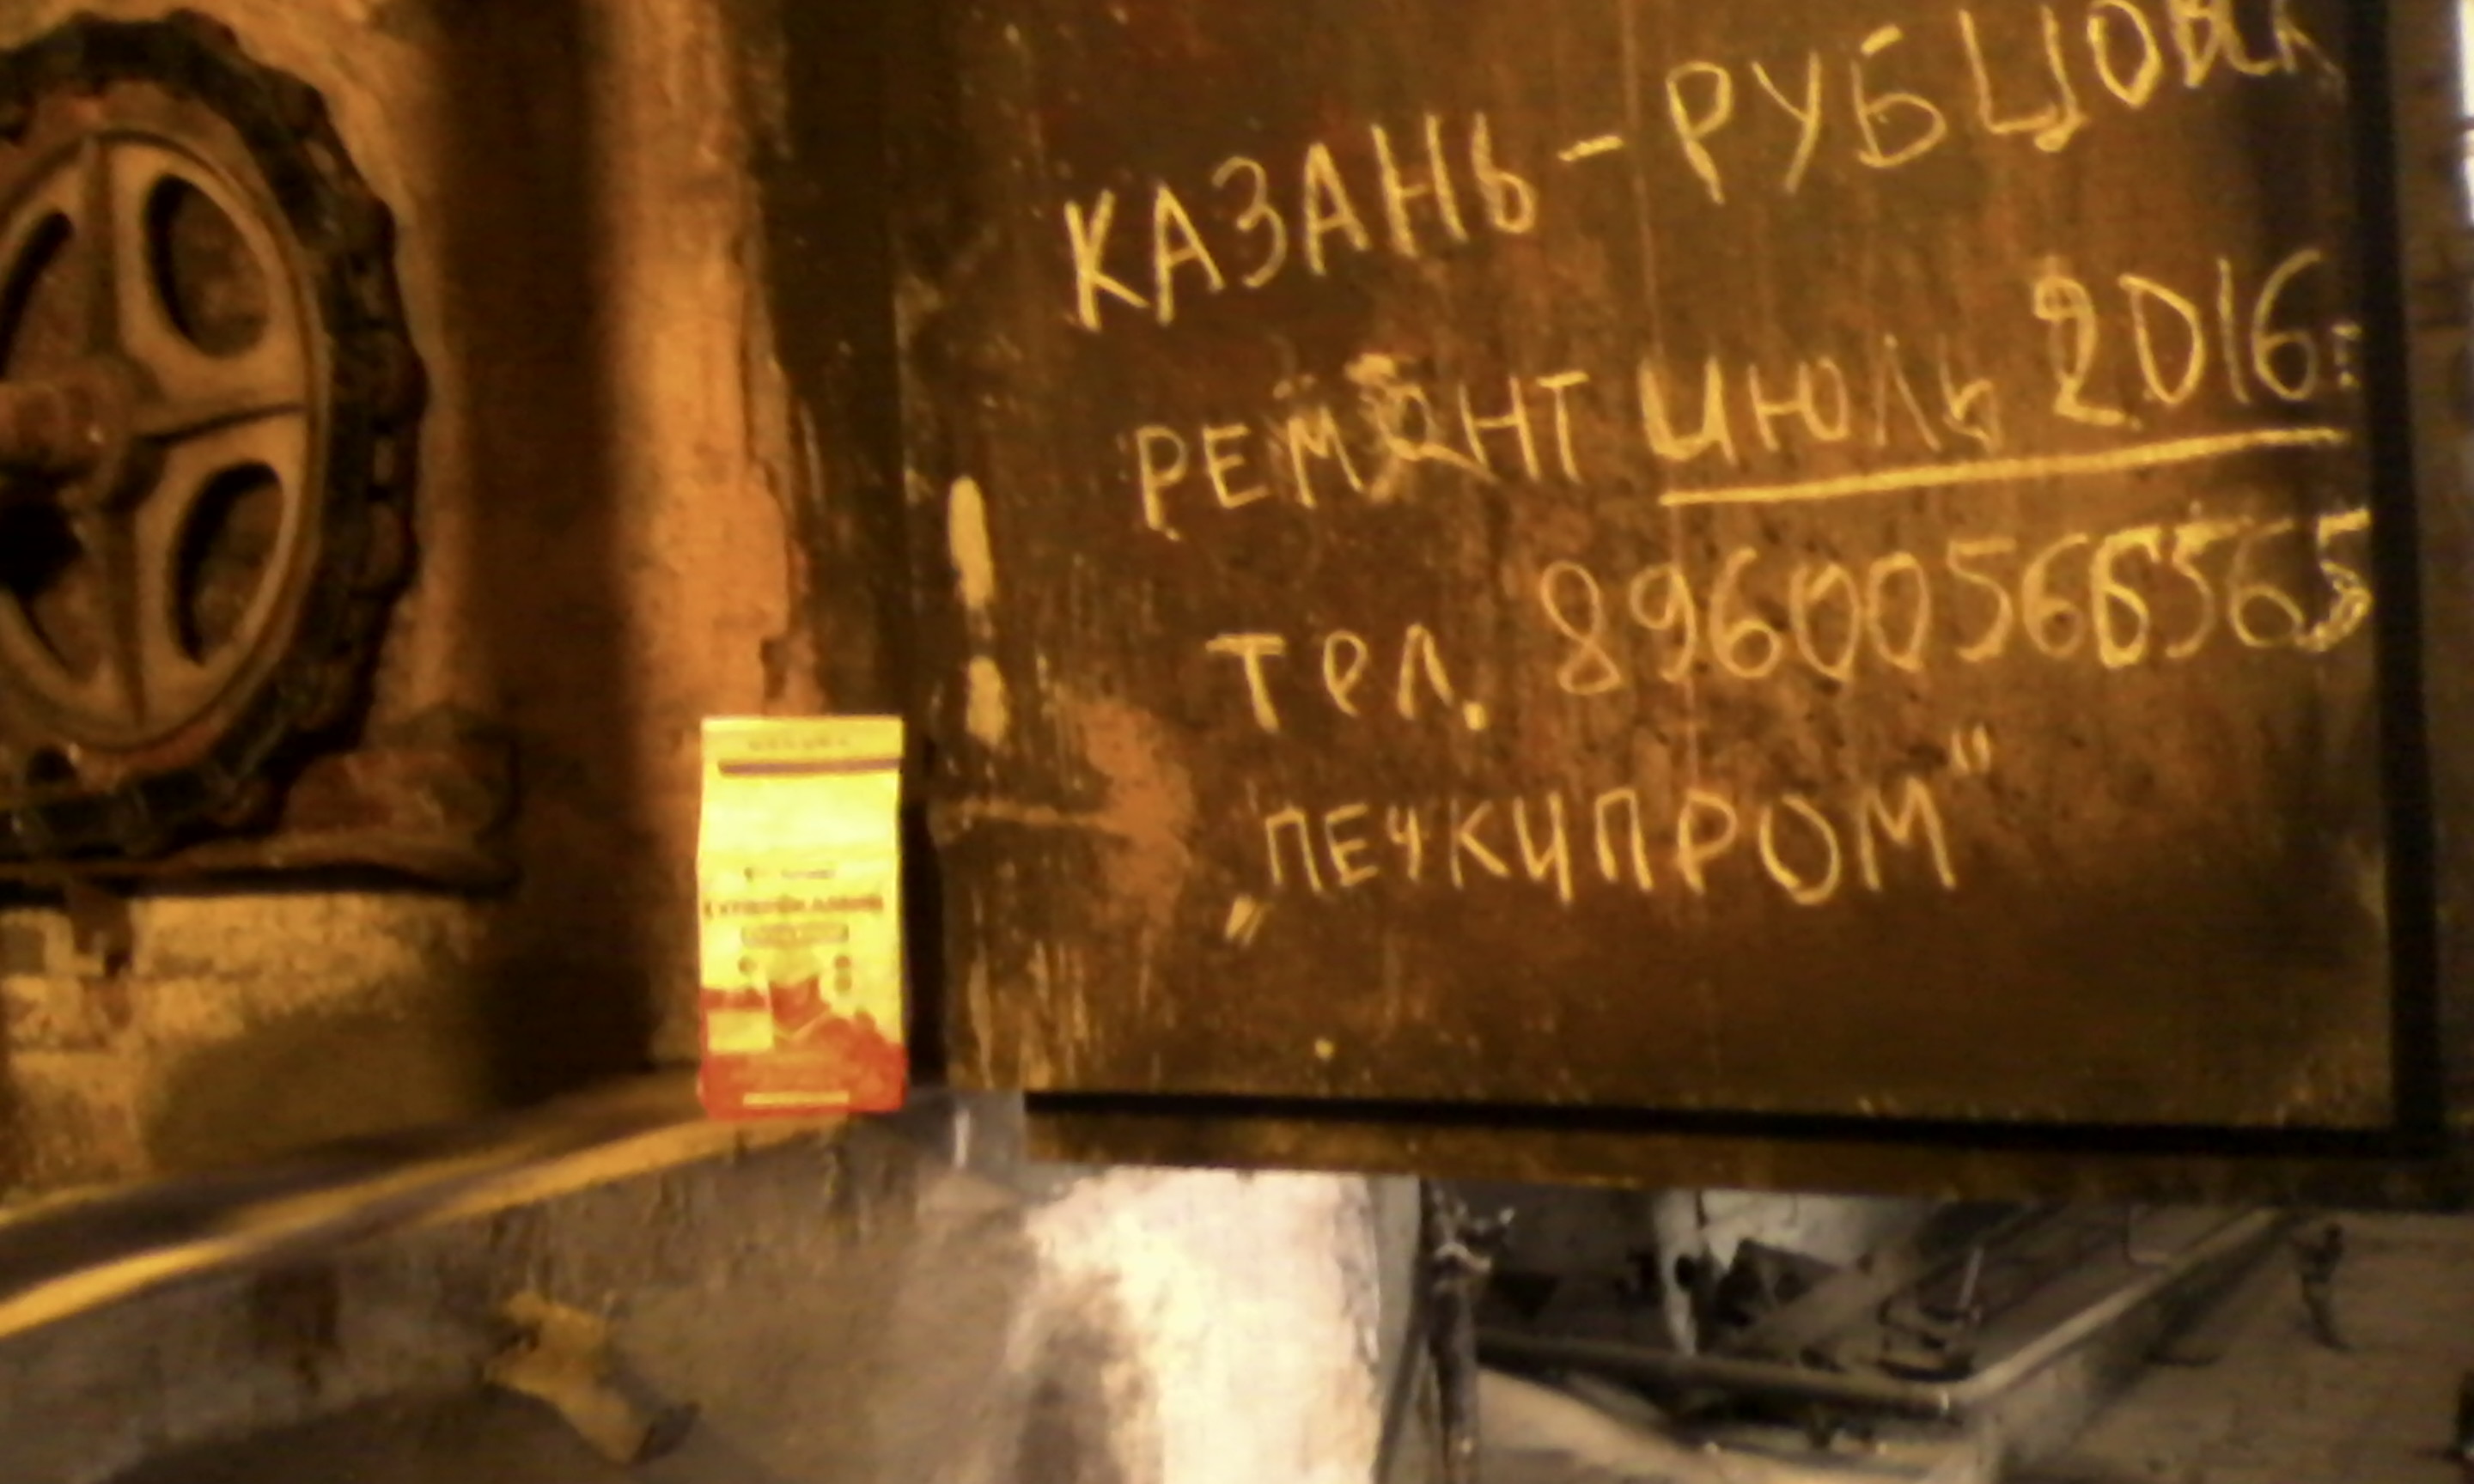 КАЗАНЬ - РУБЦОВСК
РЕМОНТ ИЮЛЬ 2016г
Тел. 89600566565
„ПЕЧКИПРОМ"